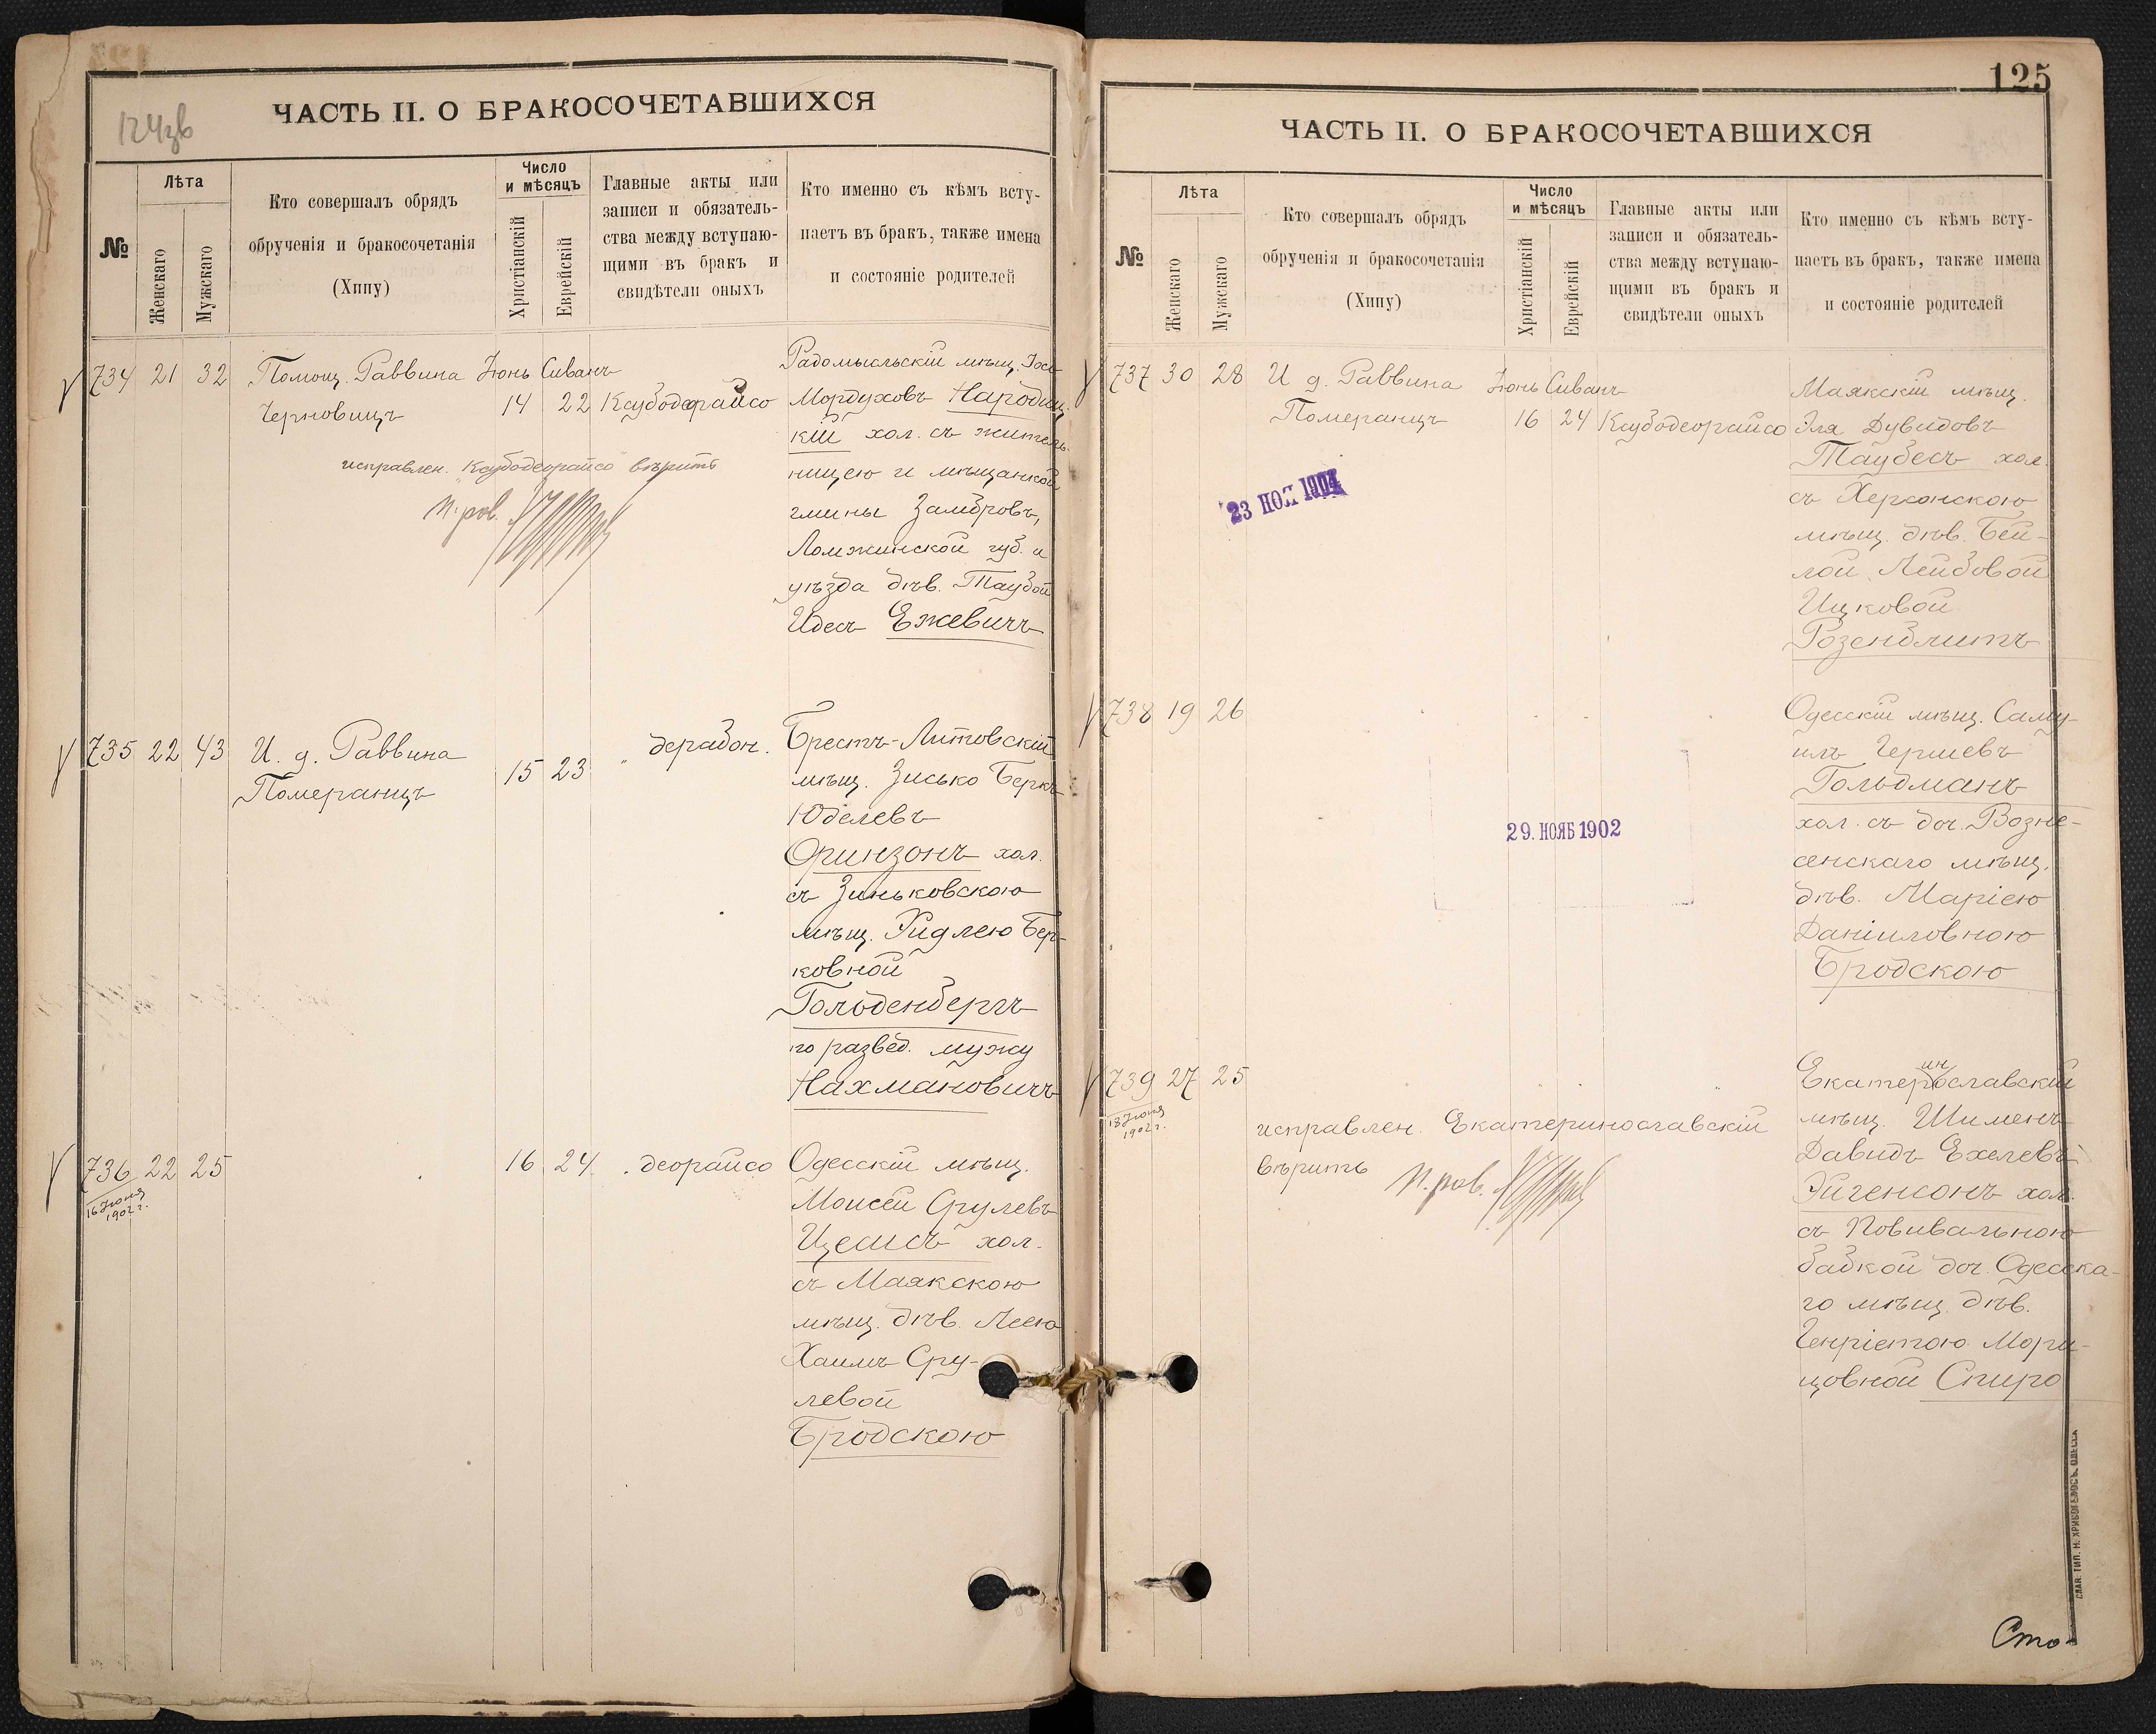 124зв
ЧАСТЬ II. О БРАКОСОЧЕТАВШИХСЯ
№
Лѣта
Женскаго
Мужскаго
Кто совершалъ обрядъ
обрученія и бракосочетанія
(Хипу)
Число
и мѣсяцъ
Христіанскій
Еврейскій
Главные акты или
записи и обязатель-
ства между вступаю-
щими въ бракъ и
свидѣтели оныхъ
Кто именно съ кѣмъ всту-
паетъ въ бракъ, также имена
и состояніе родителей
734 21 32 Помощ. Раввина Іюнь Сиванъ
Черновицъ 14 22 Ксубодеорайсо
исправлен. "Ксубодеорайсо" вѣрить
п. рав.
Радомысльскій мѣщ.
Мордуховъ Народиц-
кій хол. съ житель-
ницею и мѣщанкой
гмины Замбровъ,
Ломжинской губ. и
уѣзда дѣв. Таубой
Идесъ Ежевичъ
735 22 43 И. д. Раввина
Померанцъ 15 23 " дерабон.
Брестъ-Литовскій
мѣщ. Зисько Беркъ
Юделевъ
Оринзонъ хол.
съ Зиньковскою
мѣщ. Хидлею Бер-
ковной
Гольденбергъ
по развед. мужу
Нахмановичъ
736 22 25 16 24 " деорайсо
16 Іюня
1902 г.
Одесскій мѣщ.
Моисей Срулевъ
Цесисъ хол.
съ Маякскою
мѣщ. дѣв. Леею
Хаимъ Сру-
левой
Бродскою
125
ЧАСТЬ II. О БРАКОСОЧЕТАВШИХСЯ
№
Лѣта
Женскаго
Мужскаго
Кто совершалъ обрядъ
обрученія и бракосочетанія
(Хипу)
Число
и мѣсяцъ
Христіанскій
Еврейскій
Главные акты или
записи и обязатель-
ства между вступаю-
щими въ бракъ и
свидѣтели оныхъ
Кто именно съ кѣмъ всту-
паетъ въ бракъ, также имена
и состояніе родителей
737 30 28 И д. Раввина Іюнь Сиванъ
Померанцъ 16 24 Ксубодеорайсо
23 НОЯ 1904
Маякскій мѣщ.
Эля Дувидовъ
Таубесъ хол.
съ Херсонскою
мѣщ. дѣв. Бей-
лой Лейбовой
Ицковой
Розенблитъ
738 19 26
29. НОЯБ 1902
Одесскій мѣщ. Саму-
илъ Гершевъ
Гольдманъ
хол. съ доч. Возне-
сенскаго мѣщ.
дѣв. Маріею
Даніиловною
Бродскою
739 27 25
18 Іюня
1902 г.
исправлен. Екатеринославскій
вѣрить п. рав.
Екатеринославскій
мѣщ. Шименъ
Давидъ Ехелевъ
Эйгенсонъ хол.
съ Повивальною
бабкой доч. Одесска-
го мѣщ. дѣв.
Генріетою Мори-
цовной Спиро
Сто
СЛАВ. ТИП. Н. ХРИСОГЕЛОСЪ, ОДЕССА